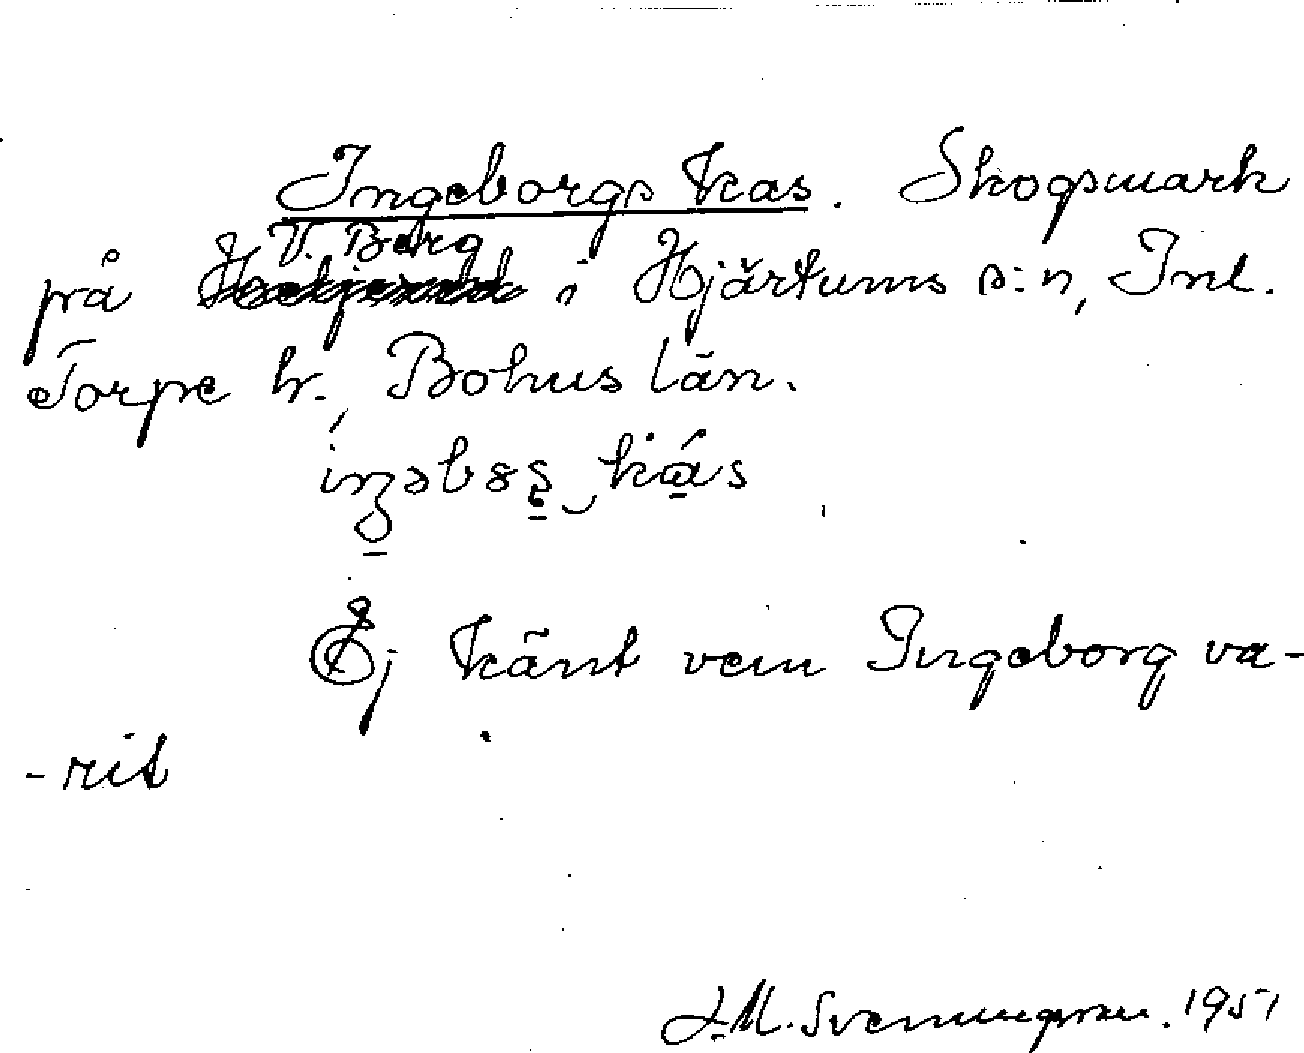 Ingeborgs kas. Skogsmark
V. Berg
på i Hjärtums s:n, Inl.
Torpe hr., Bohus län.
Ej känt vem Ingeborg va-
-rit
J.M. Svenningsson. 1951